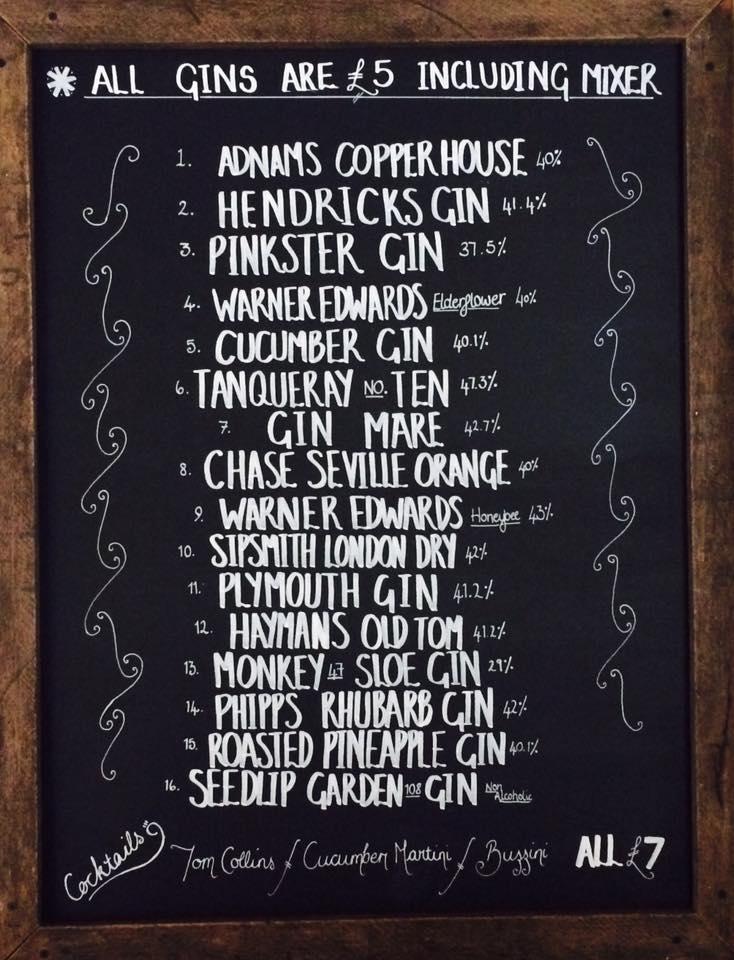 * ALL GINS ARE £5 INCLUDING MIXER
1. ADNAMS COPPER HOUSE 40%
2. HENDRICKS GIN 41.4%
3. PINKSTER GIN 37.5%
4. WARNER EDWARDS Elderflower 40%
5. CUCUMBER GIN 40.1%
6. TANQUERAY NO. TEN 47.3%
7. GIN MARE 42.7%
8. CHASE SEVILLE ORANGE 40%
9. WARNER EDWARDS Honeybee 43%
10. SIPSMITH LONDON DRY 42%
11. PLYMOUTH GIN 41.2%
12. HAYMANS OLD TOM 41.2%
13. MONKEY 47 SLOE GIN 29%
14. PHIPPS RHUBARB GIN 42%
15. ROASTED PINEAPPLE GIN 40.1%
16. SEEDLIP GARDEN 108 GIN Non Alcoholic
Cocktails Tom Collins / Cucumber Martini / Buzzini ALL £7